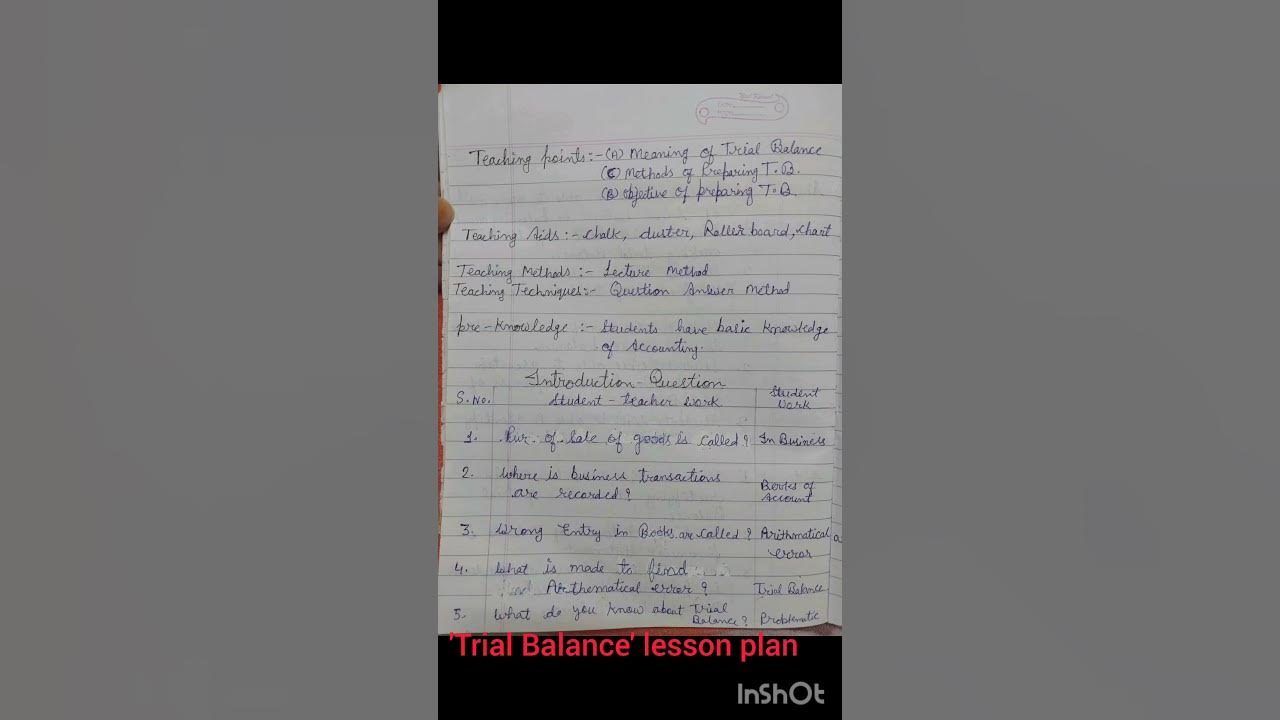 Teaching points:- (A) Meaning of Trial Balance
(C) Methods of Preparing T.B.
(B) Objective of preparing T.B.
Teaching Aids:- chalk, duster, Roller board, chart
Teaching Methods:- Lecture Method
Teaching Techniques:- Question Answer Method
Pre-Knowledge:- Students have basic knowledge
of Accounting.
Introduction Question
S.No. Student-teacher work Student Work
1. Pur. of Sale of goods is called? In Business
2. Where is business transactions
are recorded? Books of Account
3. Wrong Entry in Books are called? Arithmatical error
4. What is made to find
Arthematical error? Trial Balance
5. What do you know about Trial
Balance? Problematic
'Trial Balance' lesson plan
InShOt